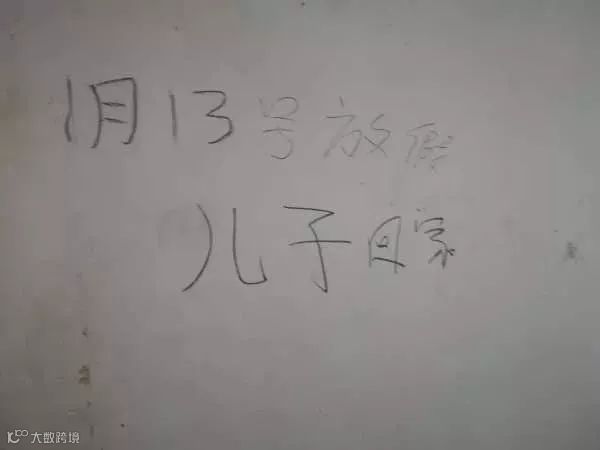 1月13号放假
儿子回家
大数跨境